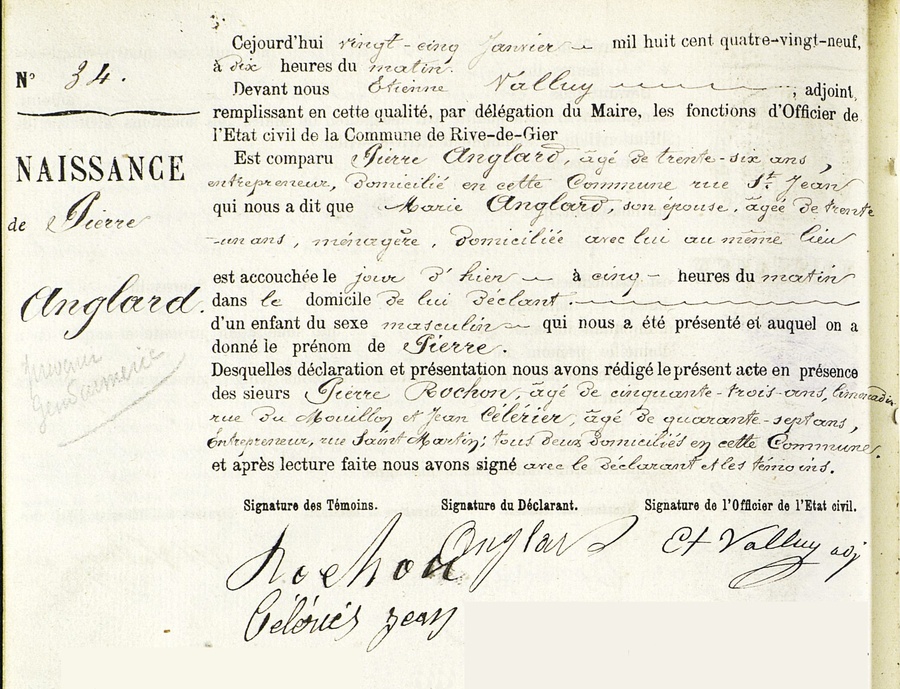 N° 34.
NAISSANCE
de Pierre
Anglard.
Gendarmerie
Cejourd'hui vingt-cinq Janvier mil huit cent quatre-vingt-neuf,
à dix heures du matin.
Devant nous Etienne Valluy, adjoint,
remplissant en cette qualité, par délégation du Maire, les fonctions d'Officier de
l'Etat civil de la Commune de Rive-de-Gier
Est comparu Pierre Anglard, âgé de trente-six ans,
entrepreneur, domicilié en cette Commune rue St. Jean
qui nous a dit que Marie Anglard, son épouse, âgée de trente
-un ans, ménagère, domiciliée avec lui au même lieu
est accouchée le jour d'hier à cinq heures du matin
dans le domicile de lui déclant.
d'un enfant du sexe masculin qui nous a été présenté et auquel on a
donné le prénom de Pierre.
Desquelles déclaration et présentation nous avons rédigé le présent acte en présence
des sieurs Pierre Rochon, âgé de cinquante-trois-ans, limonadier
rue du Mouillon et Jean Célérier, âgé de quarante-sept ans,
Entrepreneur, rue Saint Martin; tous deux domiciliés en cette Commune.
et après lecture faite nous avons signé avec le déclarant et les témoins.
Signature des Témoins. Signature du Déclarant. Signature de l'Officier de l'Etat civil.
Rochon Anglard Et Valluy adj
Jean